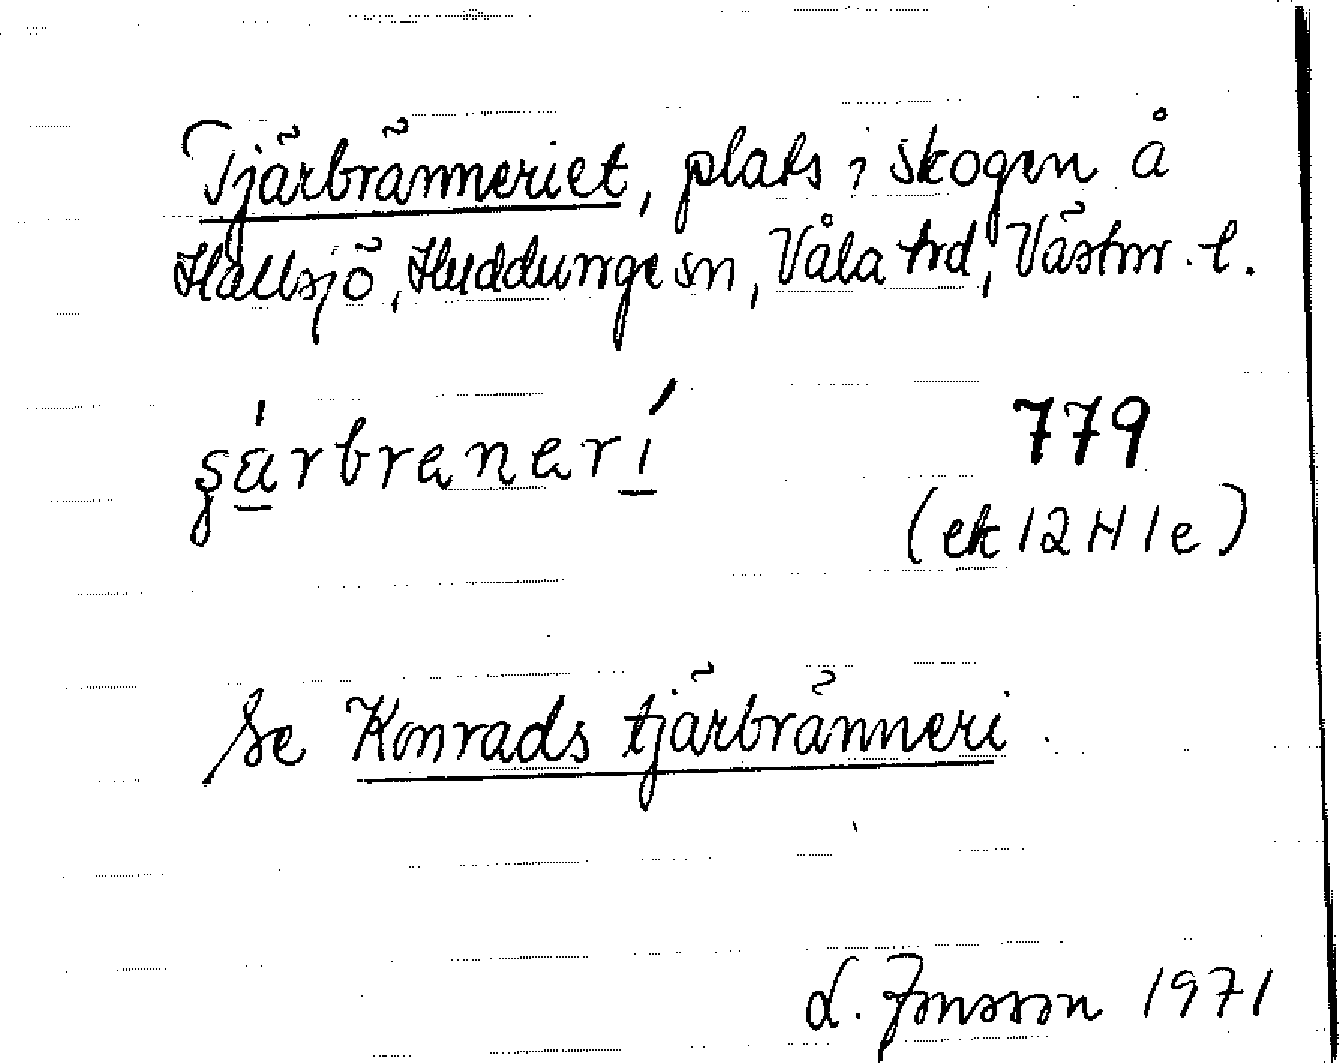 Tjärbränneriet, plats i skogen å
Hallsjö, Huddunge sn, Våla hd, Västm. l.
779
(ek 12H1e)
Se Konrads tjärbränneri.
L. Jonsson 1971